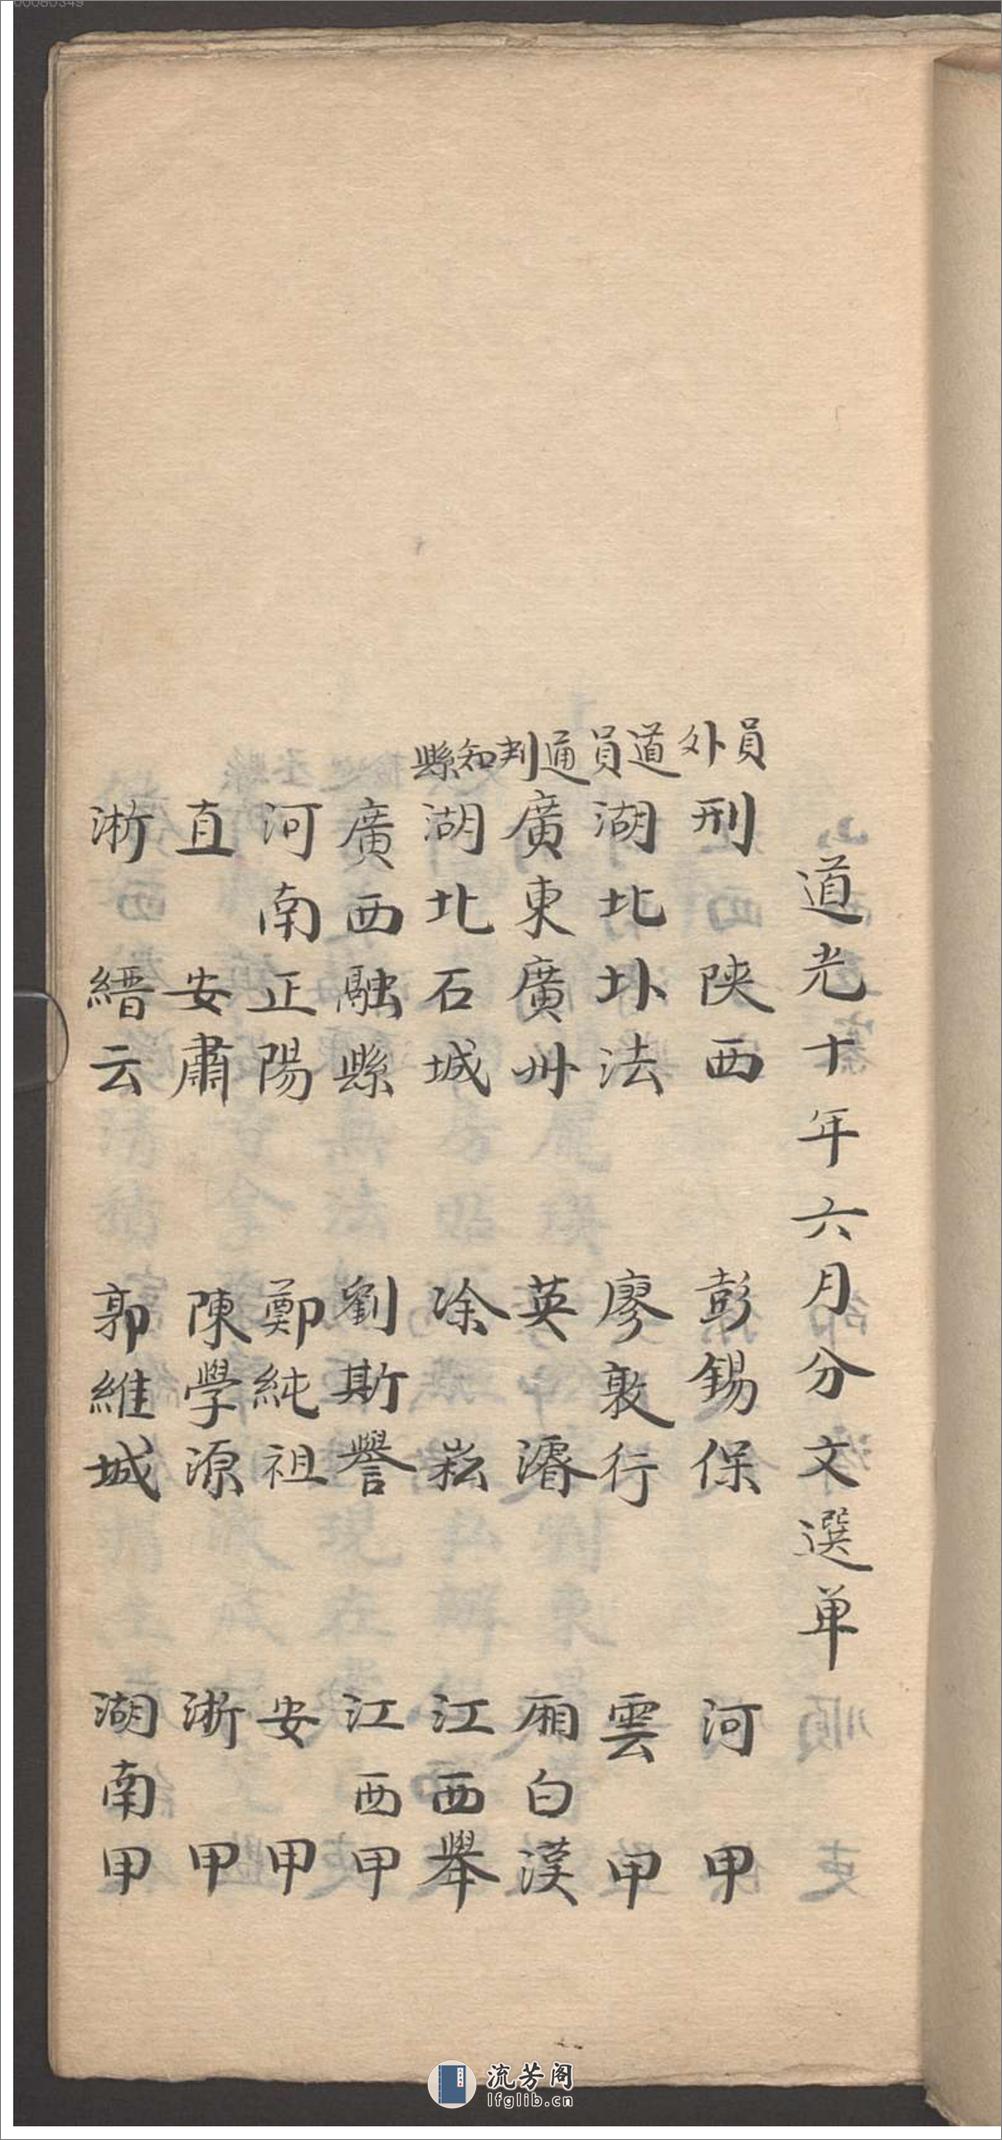 道光十年六月分文選单
員外 刑 陕西 彭錫保 河 甲
道員 湖北 圤法 廖敦行 雲 甲
通判 廣東 廣州 英濬 廂白漢
知縣 湖北 石城 凃崧 江西舉
廣西 融縣 劉斯譽 江西甲
河南 正陽 鄭純祖 安 甲
直 安肅 陳學源 淅 甲
淅 縉云 郭維城 湖南甲
流芳阁
lfglib.cn
00080349